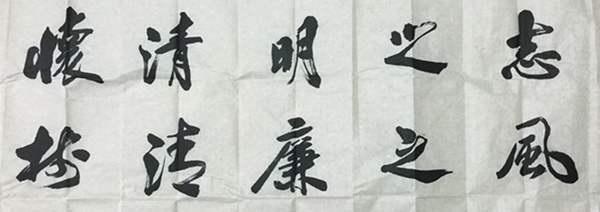 懷清明之志
樹清廉之風